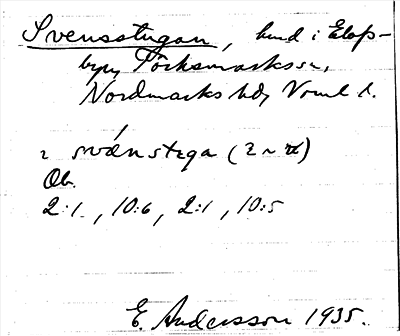 Svensstugan, hmd i Elofs-
byn, Töcksmarks sn,
Nordmarks hd, Vrml l.
svenstuga (2 ~
Ob.
2:1, 10:6, 2:1, 10:5
E. Andersson 1935.